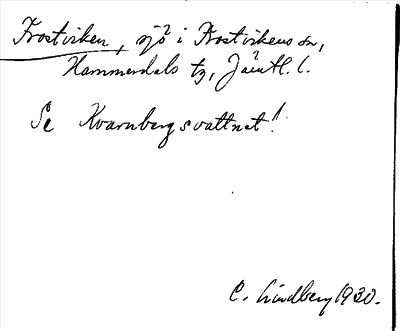 Frostviken, sjö i Frostvikens sn,
Hammerdals tg, Jämtl. l.
Se Kvarnbergsvattnet!
C. Lindberg 1930.